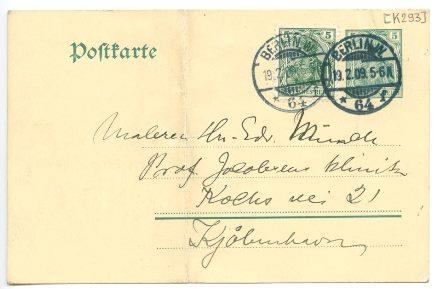 [K293]
Postkarte
5 5
BERLIN.W. BERLIN.W.
19.2. 19.2.09.5-6N.
* 64 * 64 f
Maleren Hr. Edv. Munch
Prof Jacobsens klinik
Kochs vei 21
Kjøbenhavn